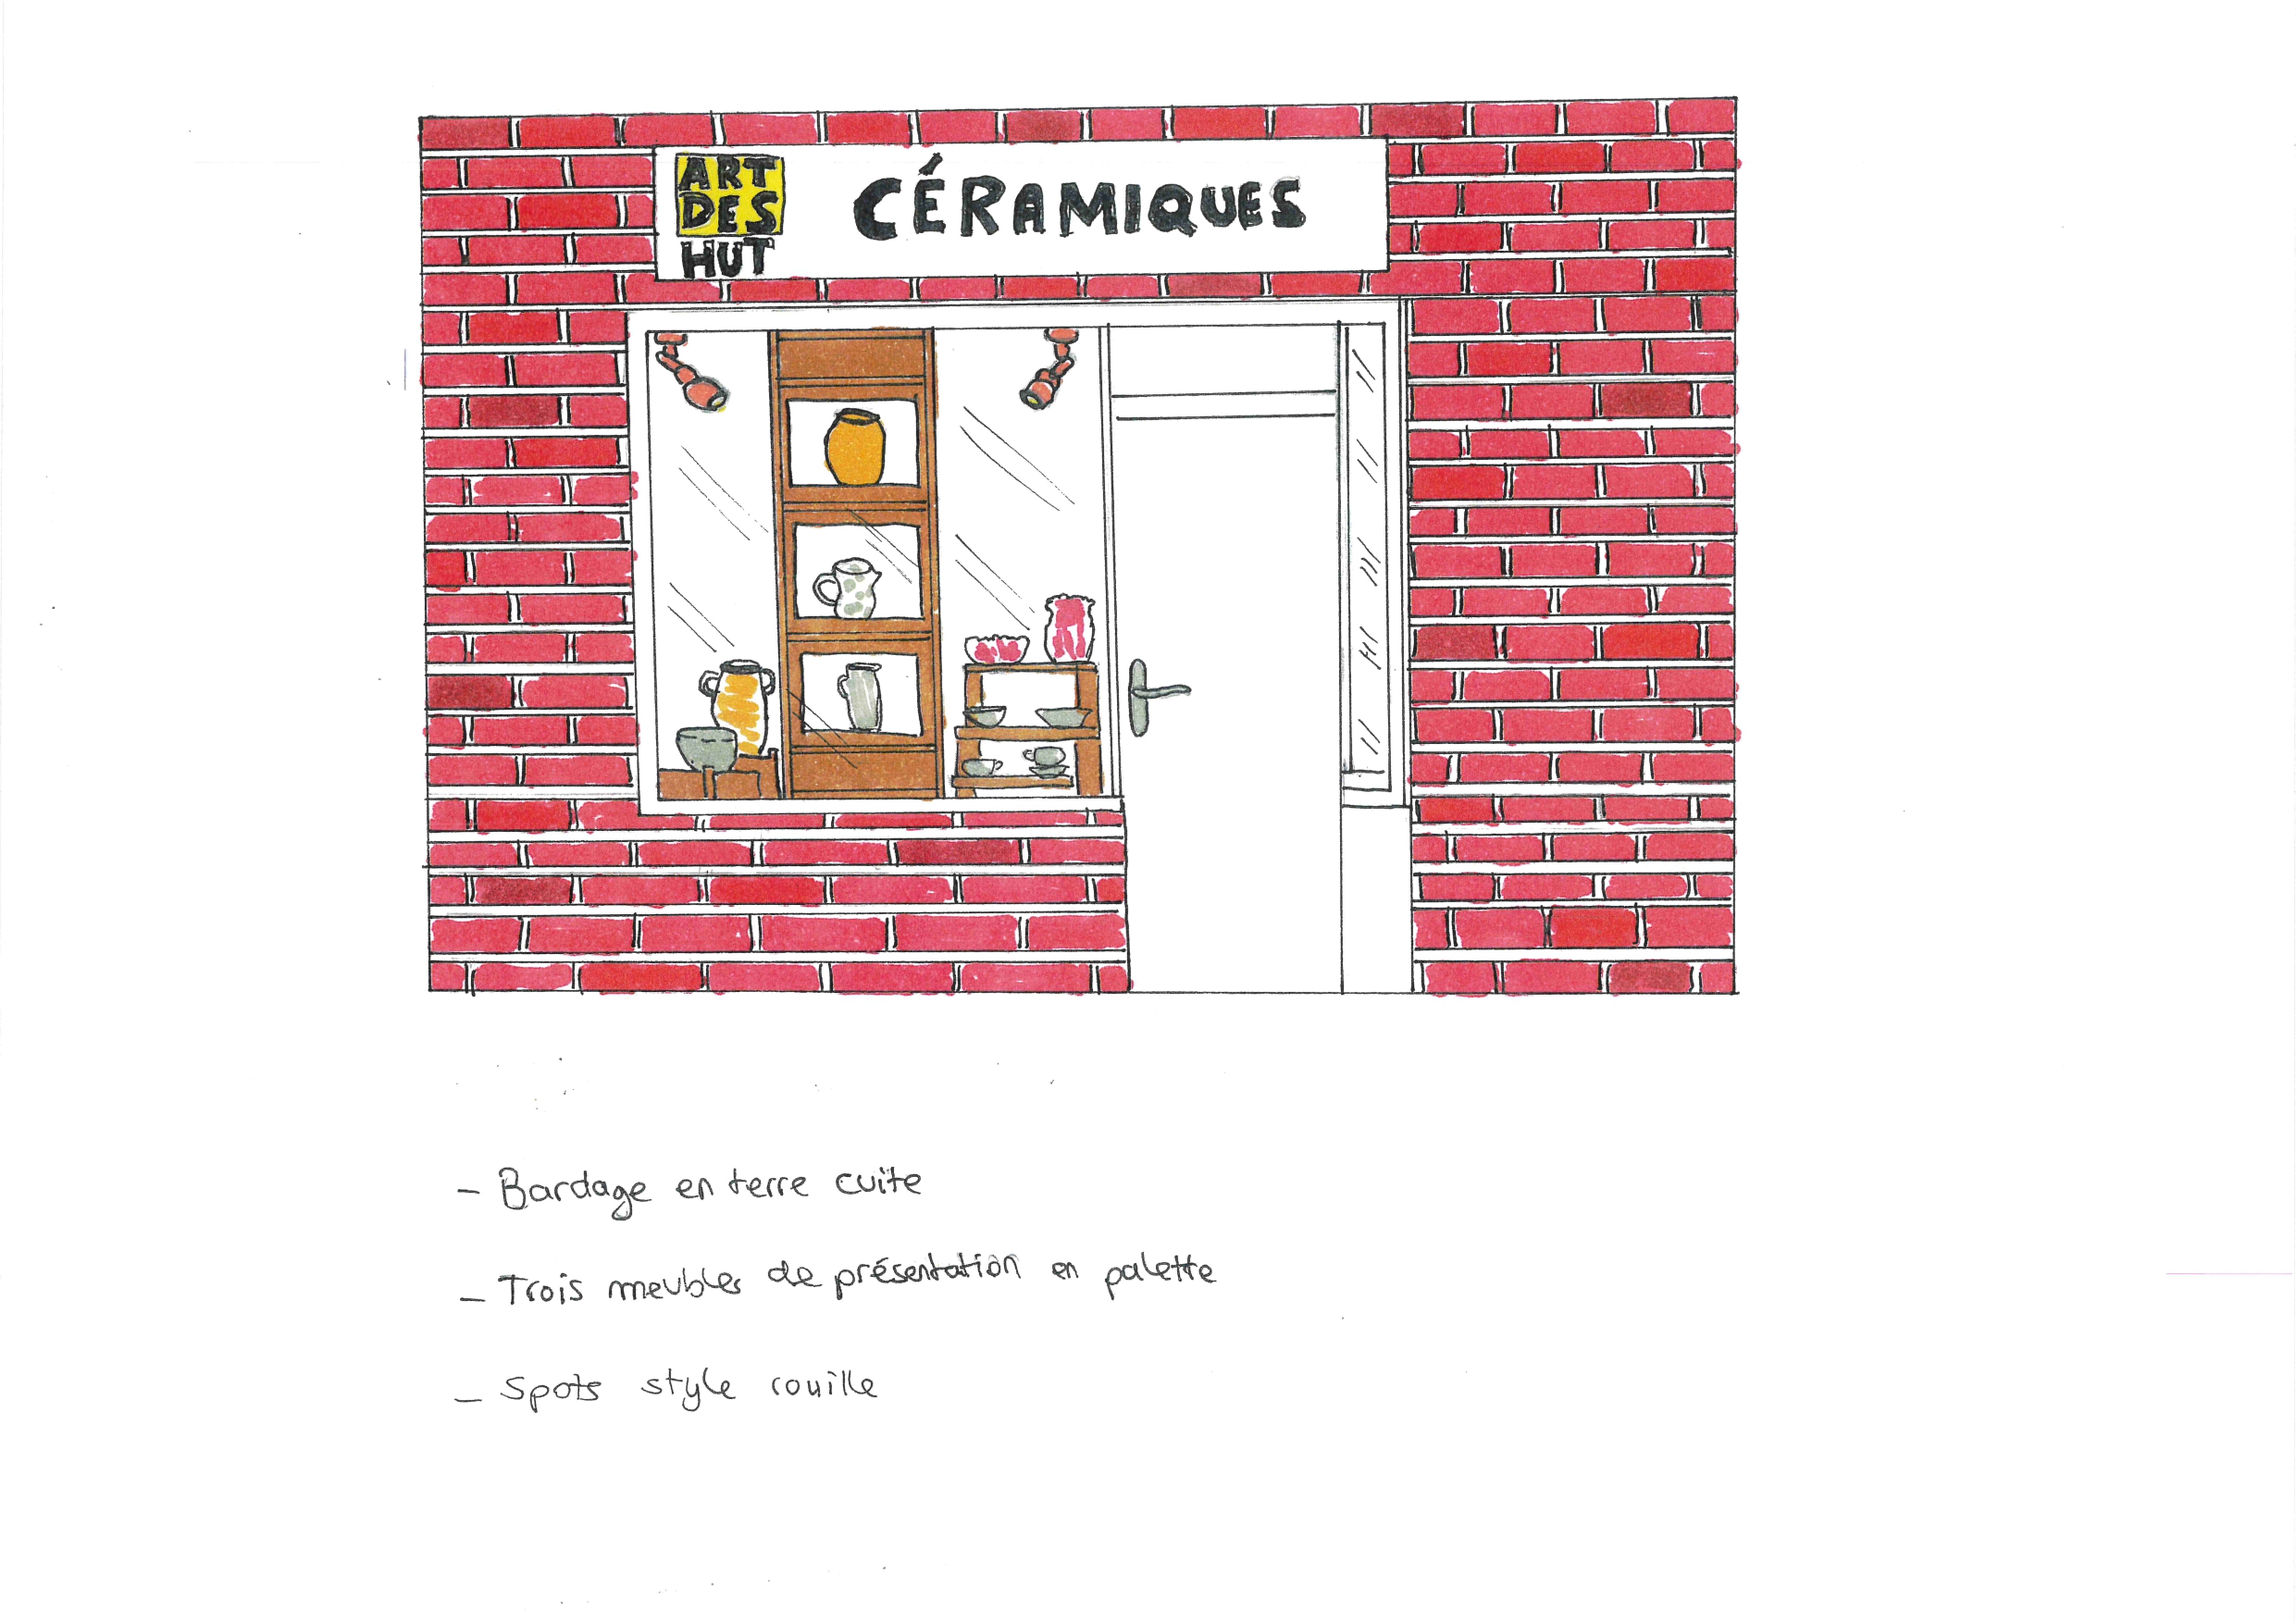 ART
DES
HUT
CÉRAMIQUES
- Bardage en terre cuite
- Trois meubles de présentation en palette
- Spots style rouille